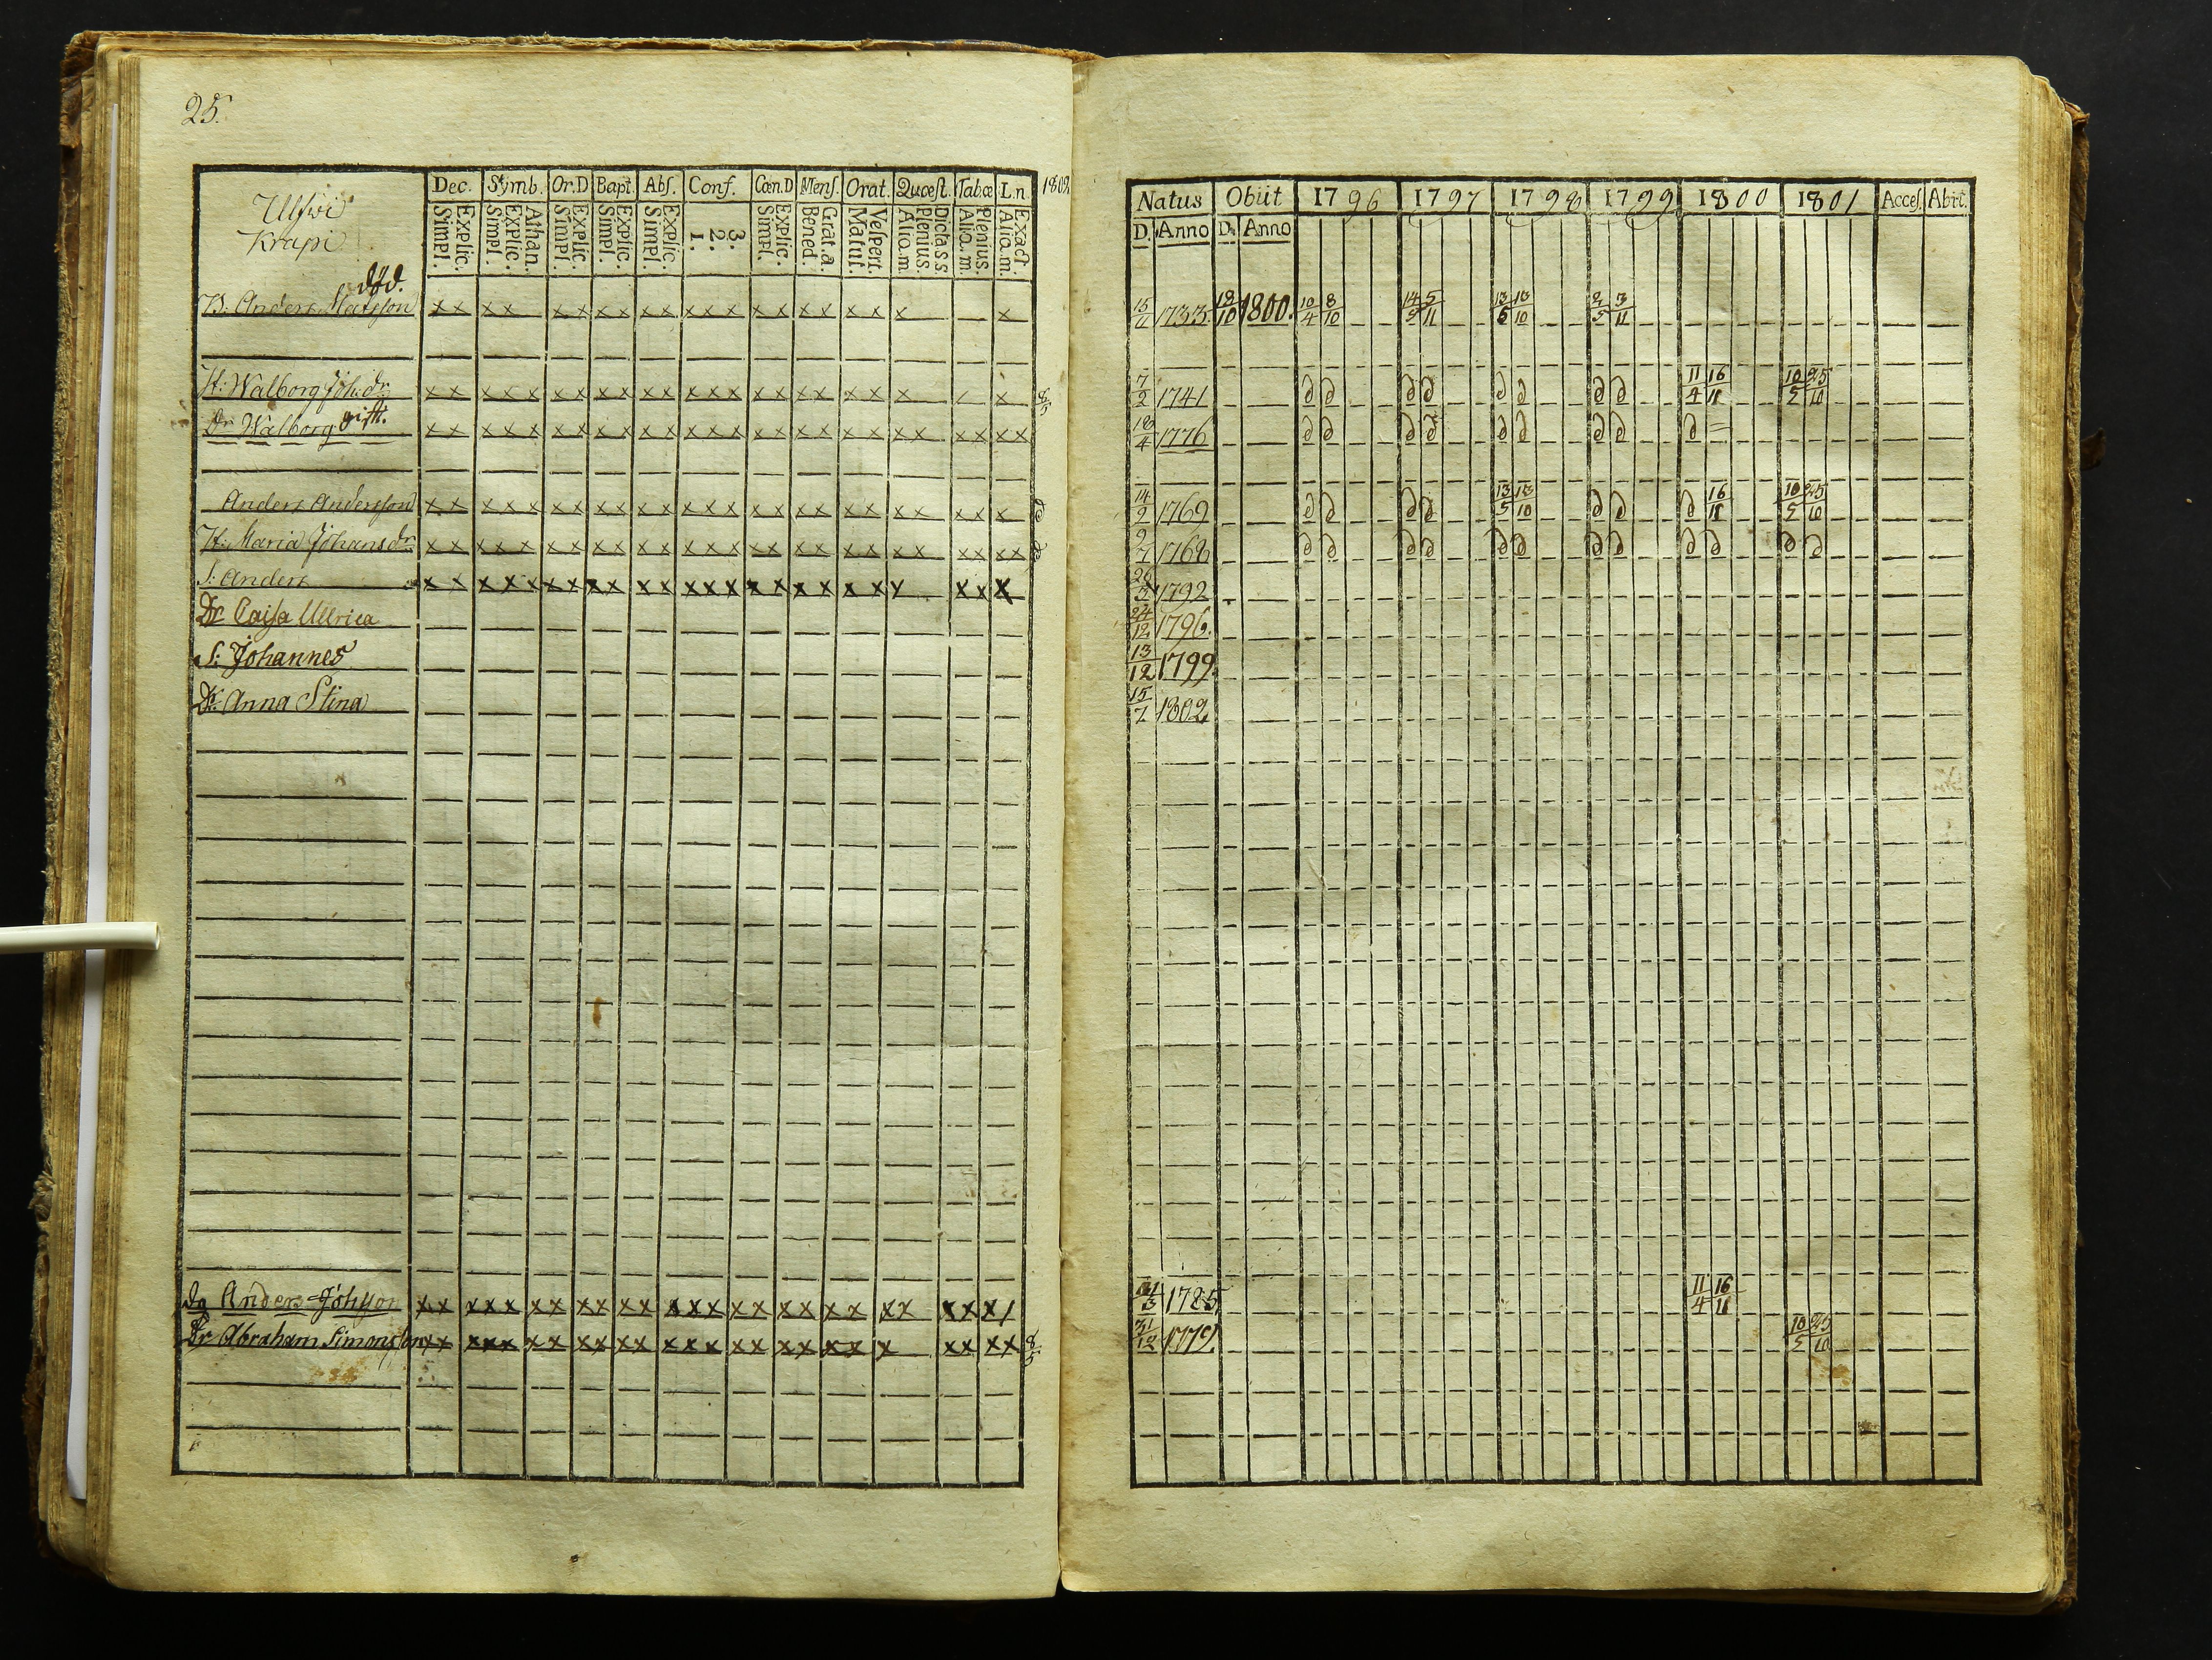 25.
Ulfwi
Krapi
Dec. Symb. Or.D Bapt. Abs. Conf. Cœn.D Mens. Orat. Quæst. Tabæ L.n. 1802
Simpl. Explic. Simpl. Explic. Athan. Simpl. Explic. Simpl. Explic. Simpl. Explic. 1. 2. 3. Simpl. Explic. Bened. Grat.a. Matut. Vespert. Aliq.m. Plenius. Dicta.s.s Aliq.m. Plenius. Aliq.m. Exact.
död.
B: Anders Matsson x x x x x x x x x x x x x x x x x x x x x
H: Walborg Joh:dr x x x x x x x x x x x x x x x x x x x x x x x 8/5
Dr Walborg gift. x x x x x x x x x x x x x x x x x x x x x x x x x x
Anders Andersson x x x x x x x x x x x x x x x x x x x x x x x x x
H: Maria Johansdr x x x x x x x x x x x x x x x x x x x x x x x x x x
S: Anders x x x x x x x x x x x x x x x x x x x x x x x x
Dr Caisa Ullrica
S: Johannes
Dr: Anna Stina
dg Anders Johsson x x x x x x x x x x x x x x x x x x x x x x x x x
Dr Abraham Simonsson x x x x x x x x x x x x x x x x x x x x x x x x x 8/5
Natus Obiit 1796 1797 1798 1799 1800 1801 Acces. Abit.
D. Anno D. Anno
15/11 1733 18/10 1800. 10/4 8/10 14/5 5/11 13/5 13/10 2/5 3/11
7/2 1741 11/4 16/11 10/5 25/10
18/4 1776
14/2 1769 13/5 13/10 16/11 10/5 25/10
9/7 1768
1792
24/12 1796.
13/12 1799.
15/7 1802
1785 11/4 16/11
31/12 1779. 10/5 25/10